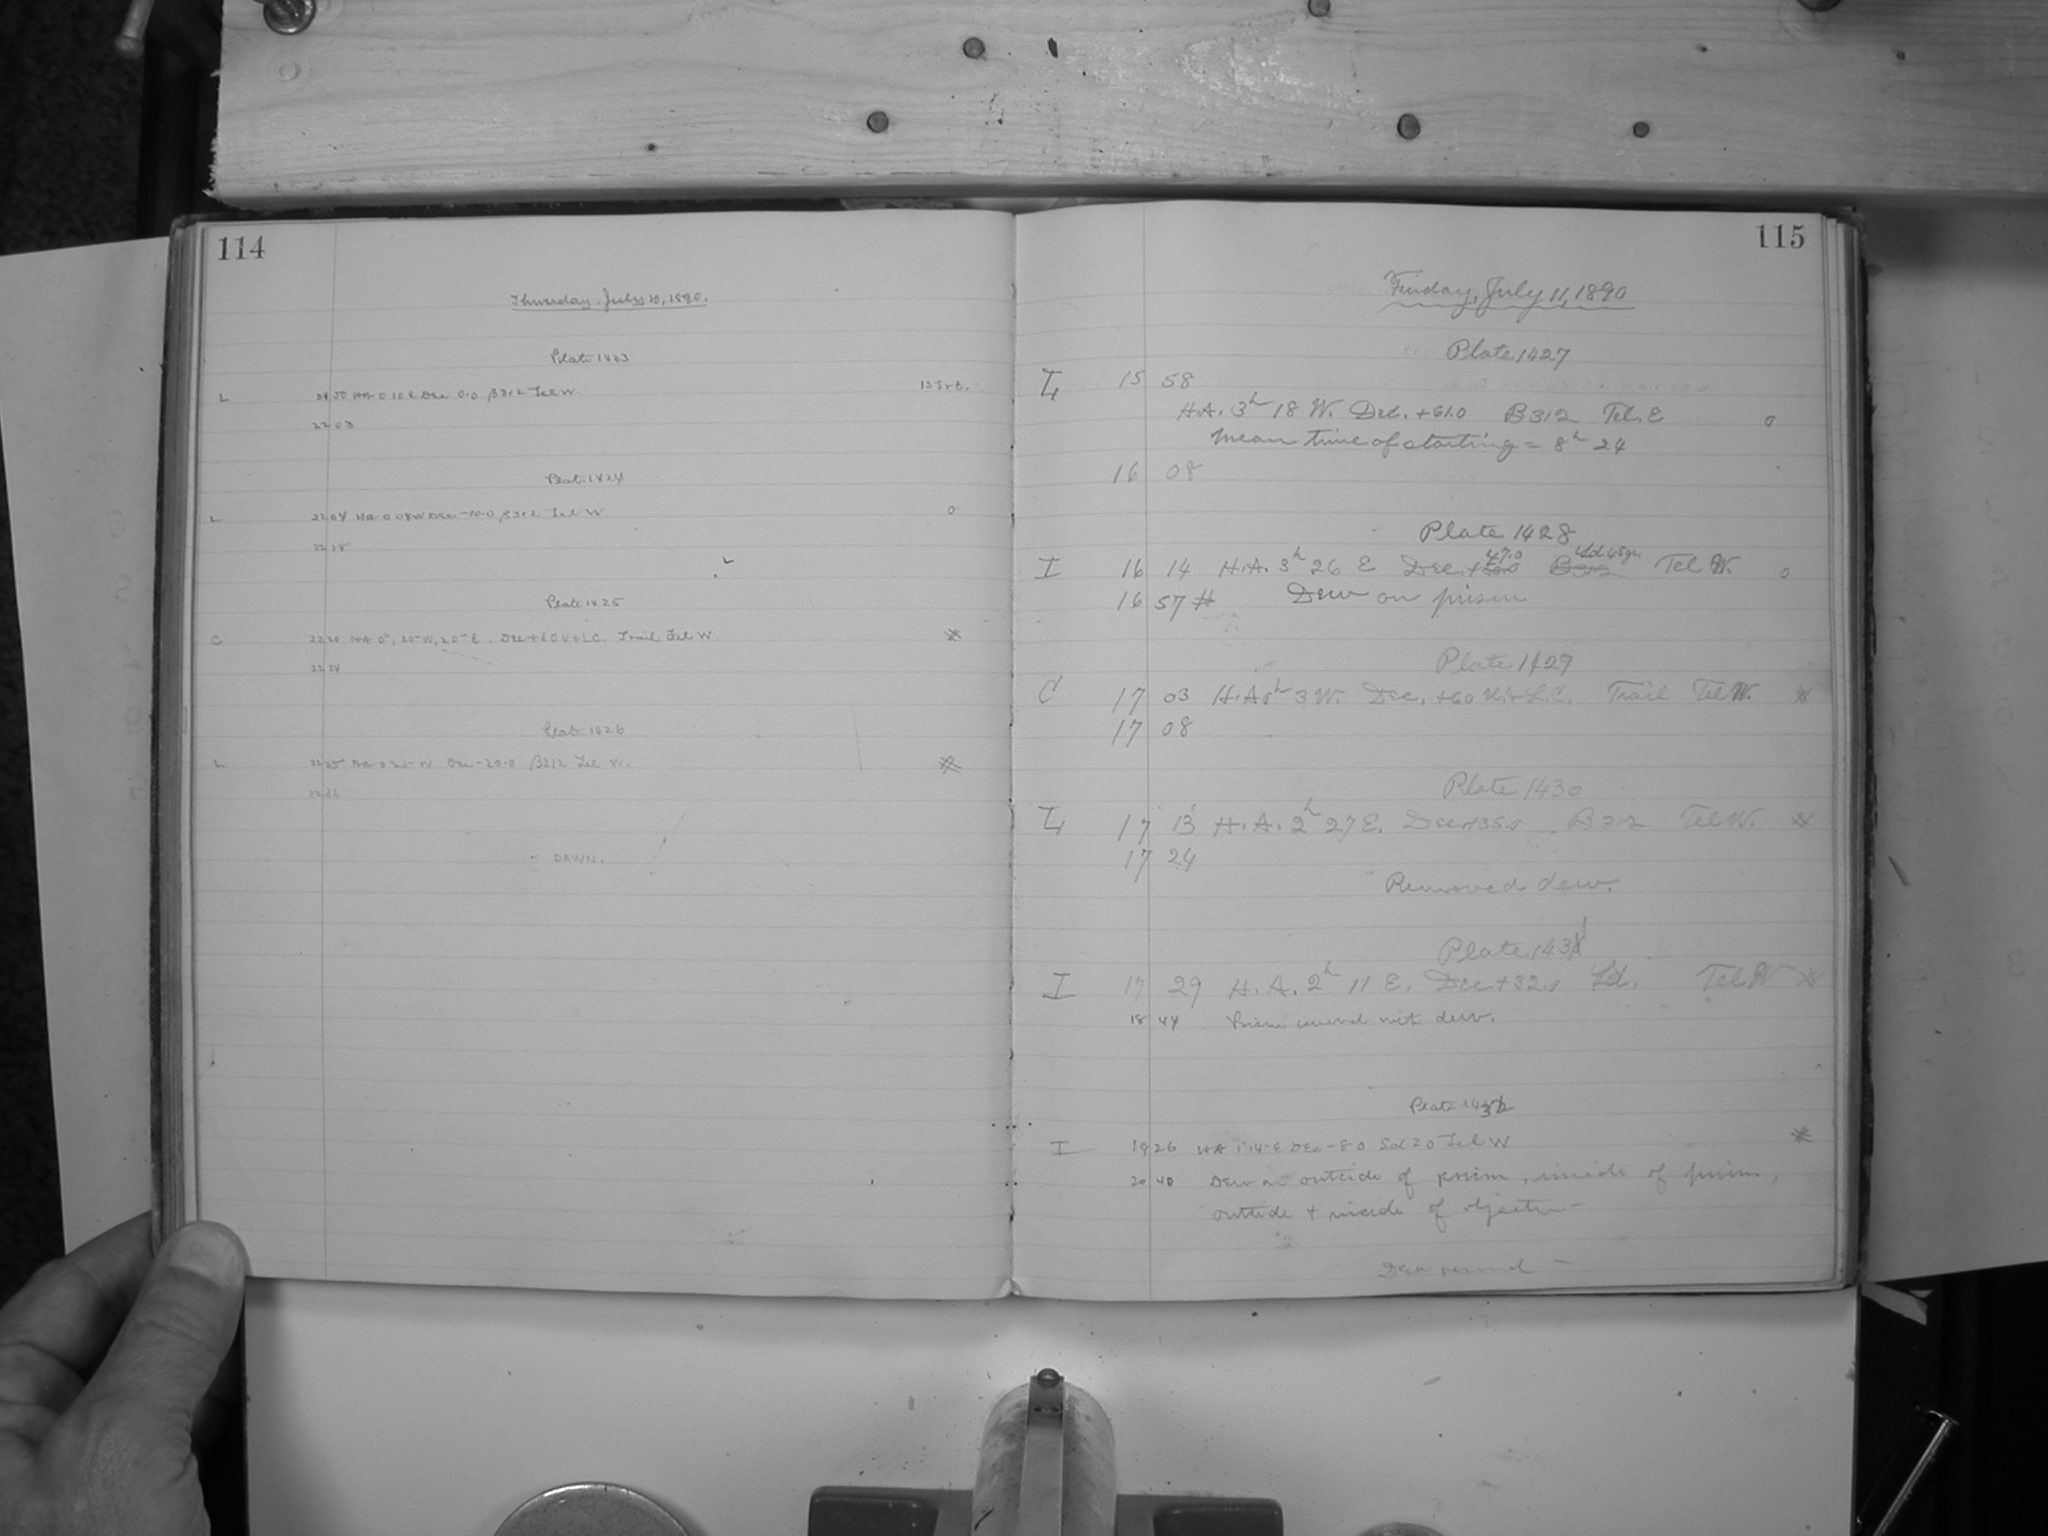 114
Thursday. July 10, 1890.
Plate 1423
L 21 50 HA 0 10 E Dec 0.0 B312 Tel W.
22 03
Plate 1424
L 22 04 HA 0 08 W Dec -10.0 B312 Tel W 0
22 18
Plate 1425
C 22 20 Dec + 60 U + L C. Trail Tel W.
22 24
Plate 1426
L 22 25 HA 0 25 W Dec -20.0 B312 Tel W.
22 36
DAWN.
115
Friday, July 11, 1890
Plate 1427
L 15 58
H.A. 3h 18 W. Dec. +61.0 B312 Tel. E 0
Mean time of starting = 8h 24
16 08
Plate 1428
47.0
I 16 14 H.A. 3h 26 E Dec. +50.0 B312 Tel W. 0
16 57 # Dew on prism
Plate 1429
C 17 03 H.A. 0h 3 W. Dec. +60 U. + L.C. Trail Tel W.
17 08
Plate 1430
L 17 13 H.A. 2h 27 E. Dec +35.0 B312 Tel W.
17 24
Removed dew.
Plate 1431
I 17 29 H.A. 2h 11 E. Dec +32.0 Sd. Tel W
18 44 Prism covered with dew.
Plate 1432
I 19 26 HA 1 14 E Dec -8.0 Sd 20 Tel W
20 40 Dew on outside of prism, inside of prism,
outside + inside of objective
Dew removed